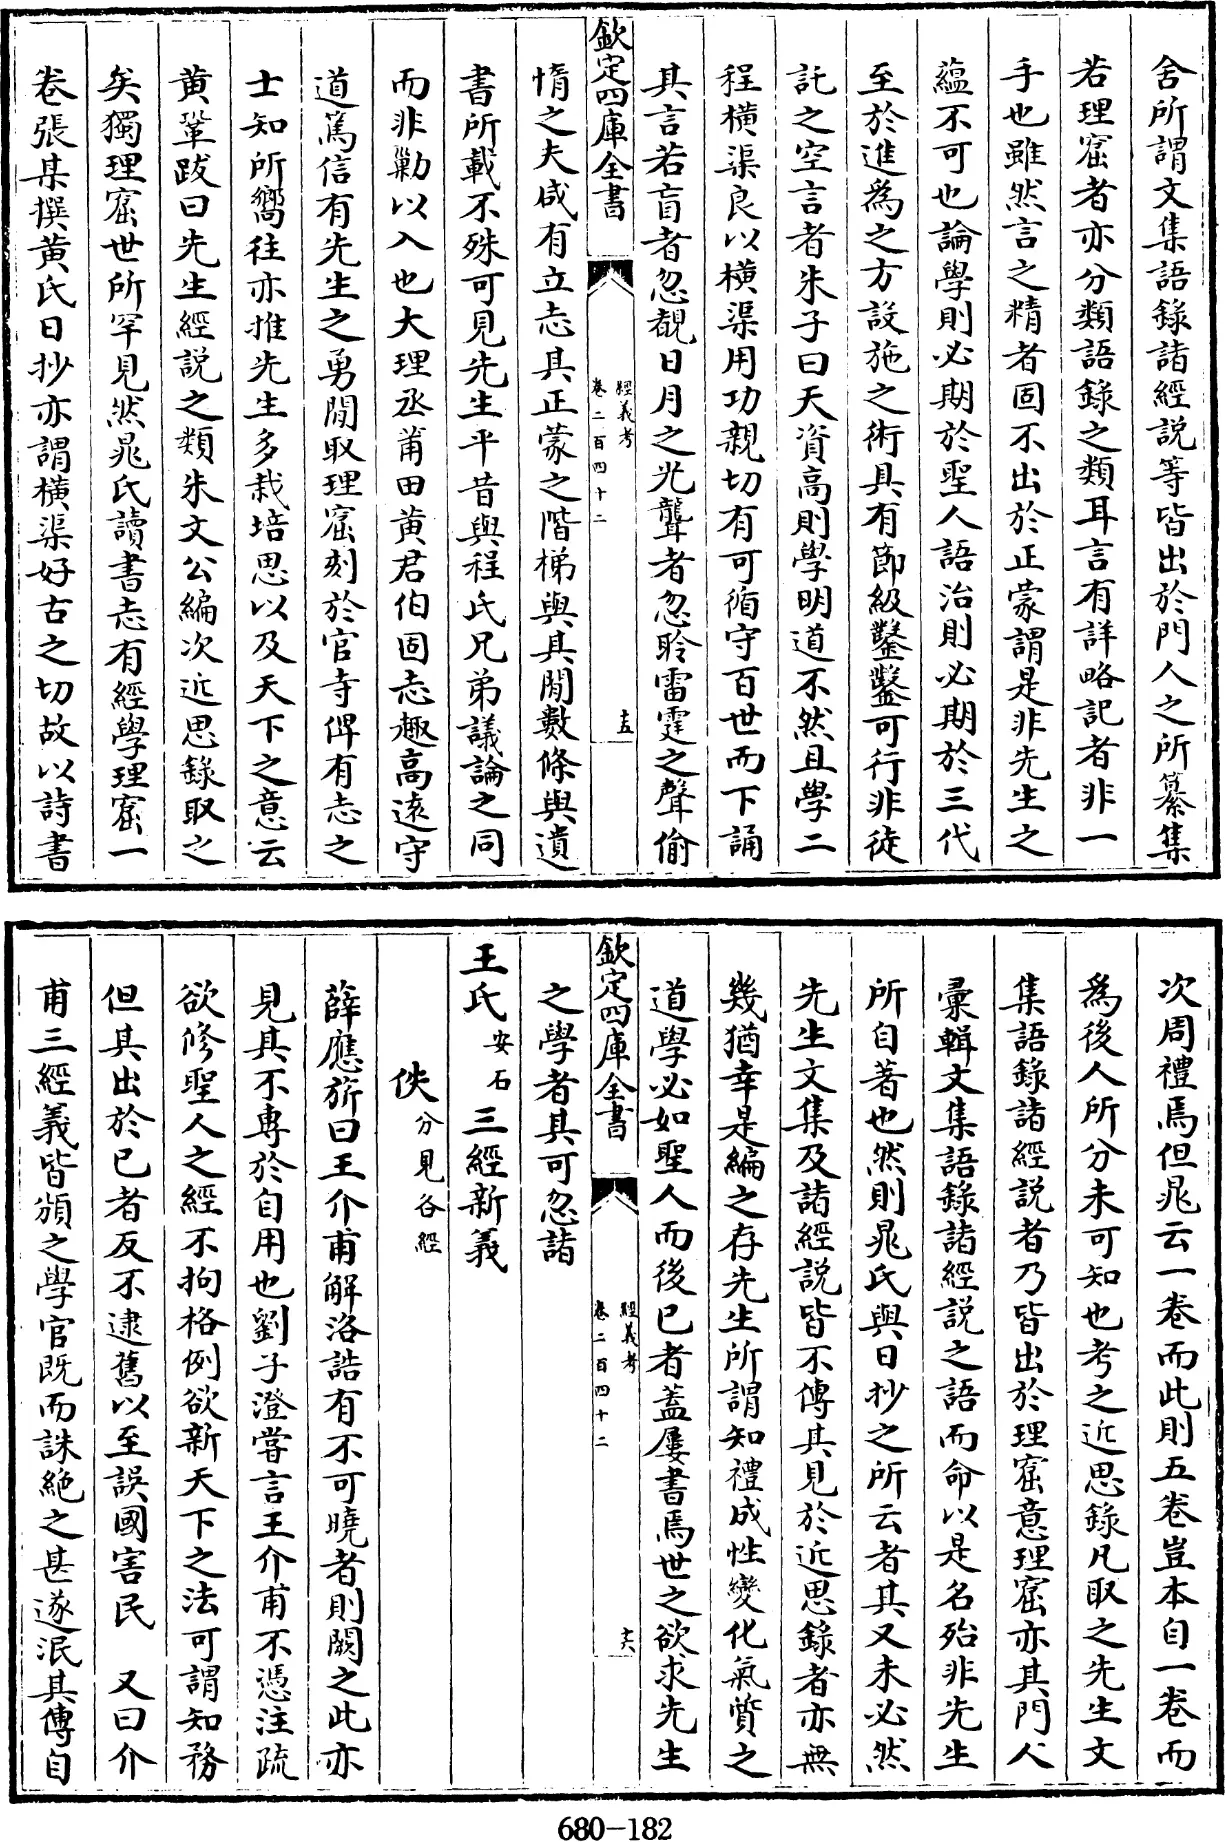 舍所謂文集語錄諸經説等皆出於門人之所纂集
若理窟者亦分類語錄之類耳言有詳略記者非一
手也雖然言之精者固不出於正蒙謂是非先生之
蘊不可也論學則必期於聖人語治則必期於三代
至於進為之方設施之術具有節級鑿鑿可行非徒
託之空言者朱子曰天資高則學明道不然且學二
程橫渠良以橫渠用功親切有可循守百世而下誦
其言若盲者忽覩日月之光聾者忽聆雷霆之聲偷
欽定四庫全書
經義考
卷二百四十二
十五
惰之夫咸有立志其正蒙之階梯與其間數條與遺
書所載不殊可見先生平昔與程氏兄弟議論之同
而非勦以入也大理丞莆田黄君伯固志趣高逺守
道篤信有先生之勇間取理窟刻於官寺俾有志之
士知所嚮往亦推先生多栽培思以及天下之意云
黄鞏跋曰先生經説之類朱文公編次近思錄取之
矣獨理窟世所罕見然晁氏讀書志有經學理窟一
卷張某撰黄氏日抄亦謂橫渠好古之切故以詩書
次周禮焉但晁云一卷而此則五卷豈本自一卷而
為後人所分未可知也考之近思錄凡取之先生文
集語錄諸經説者乃皆出於理窟意理窟亦其門人
彚輯文集語錄諸經説之語而命以是名殆非先生
所自著也然則晁氏與日抄之所云者其又未必然
先生文集及諸經説皆不傳其見於近思錄者亦無
幾猶幸是編之存先生所謂知禮成性變化氣質之
道學必如聖人而後已者蓋屢書焉世之欲求先生
欽定四庫全書
經義考
卷二百四十二
十六
之學者其可忽諸
王氏安石三經新義
佚分見各經
薛應旂曰王介甫解洛誥有不可曉者則闕之此亦
見其不專於自用也劉子澄嘗言王介甫不憑注疏
欲修聖人之經不拘格例欲新天下之法可謂知務
但其出於已者反不逮舊以至誤國害民 又曰介
甫三經義皆頒之學官既而誅絶之甚遂泯其傳自
680-182